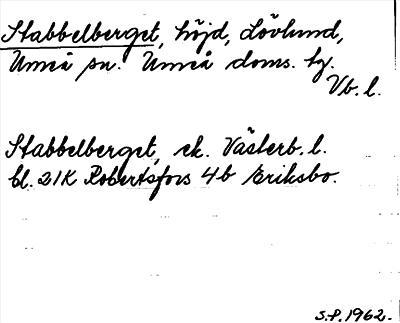 Stabbelberget, höjd, Lövlund,
Umeå sn. Umeå doms. hg.
Vb. l.
Stabbelberget, ek. Västerb. l.
bl. 21K Robertsfors 4b Eriksbo.
S.P. 1962.